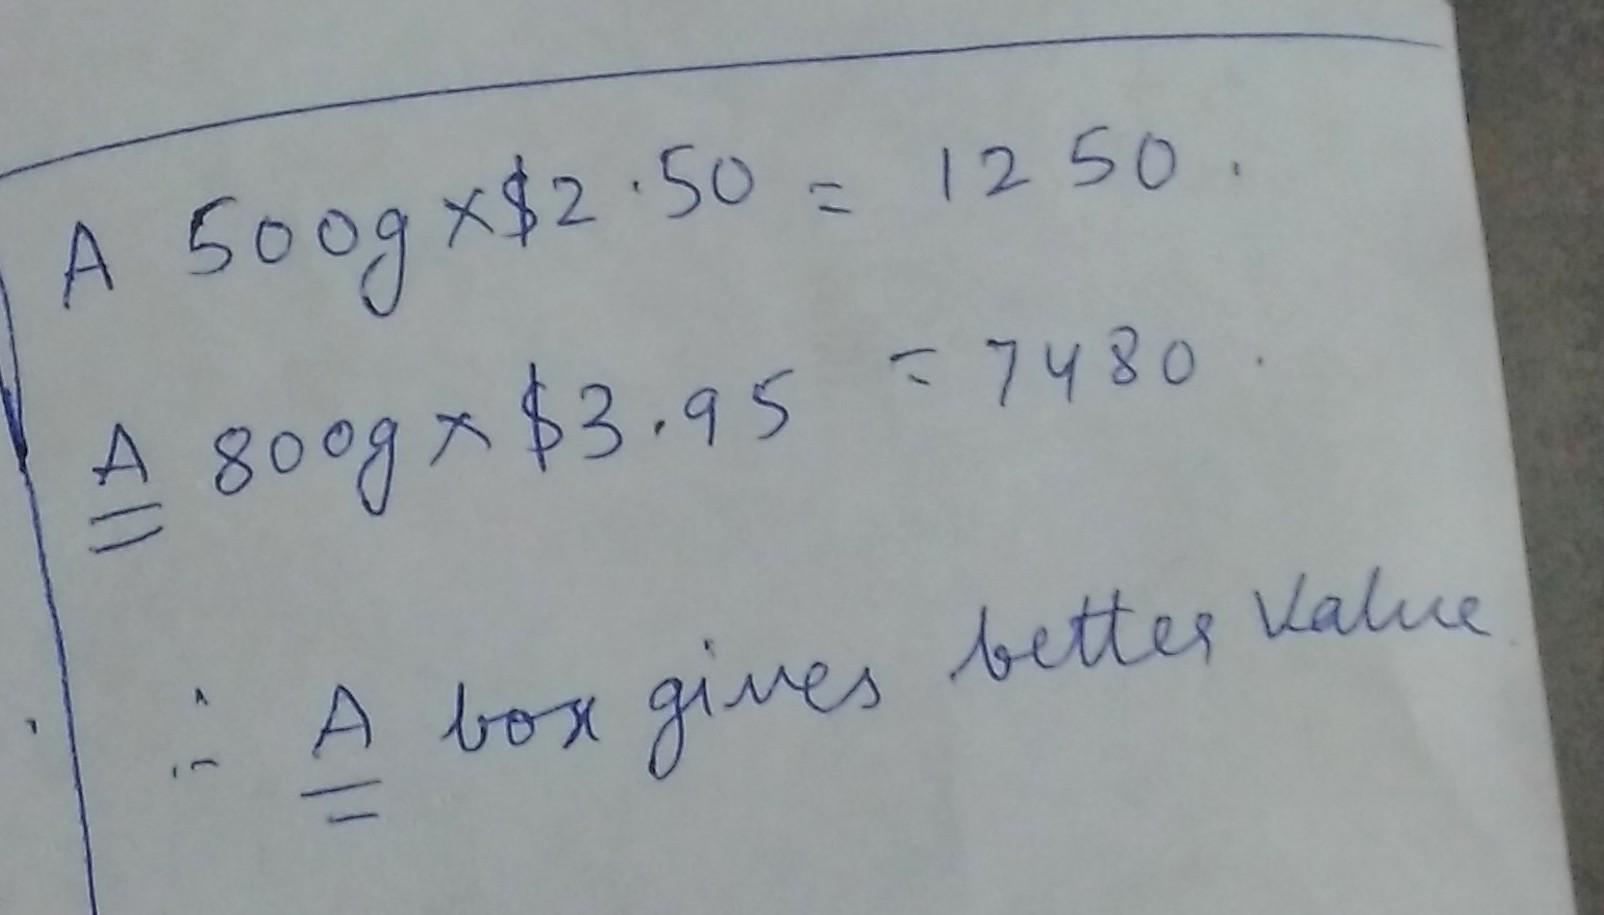 A 500g x $2.50 = 1250.
A 800g x $3.95 = 7480.
∴ A box gives better value